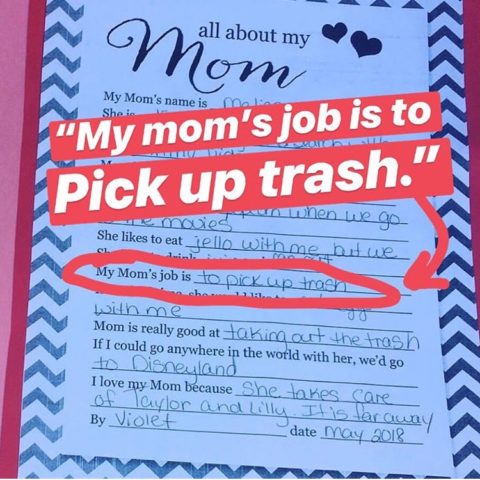 all about my
Mom
My Mom's name is
She is
"My mom's job is to
Pick up trash."
when we go
the movies
She likes to eat jello with me but we
My Mom's job is to pick up trash
with me
Mom is really good at taking out the trash
If I could go anywhere in the world with her, we'd go
to Disneyland
I love my Mom because She takes care
of Taylor and Lilly. It is far away
By Violet date May 2018